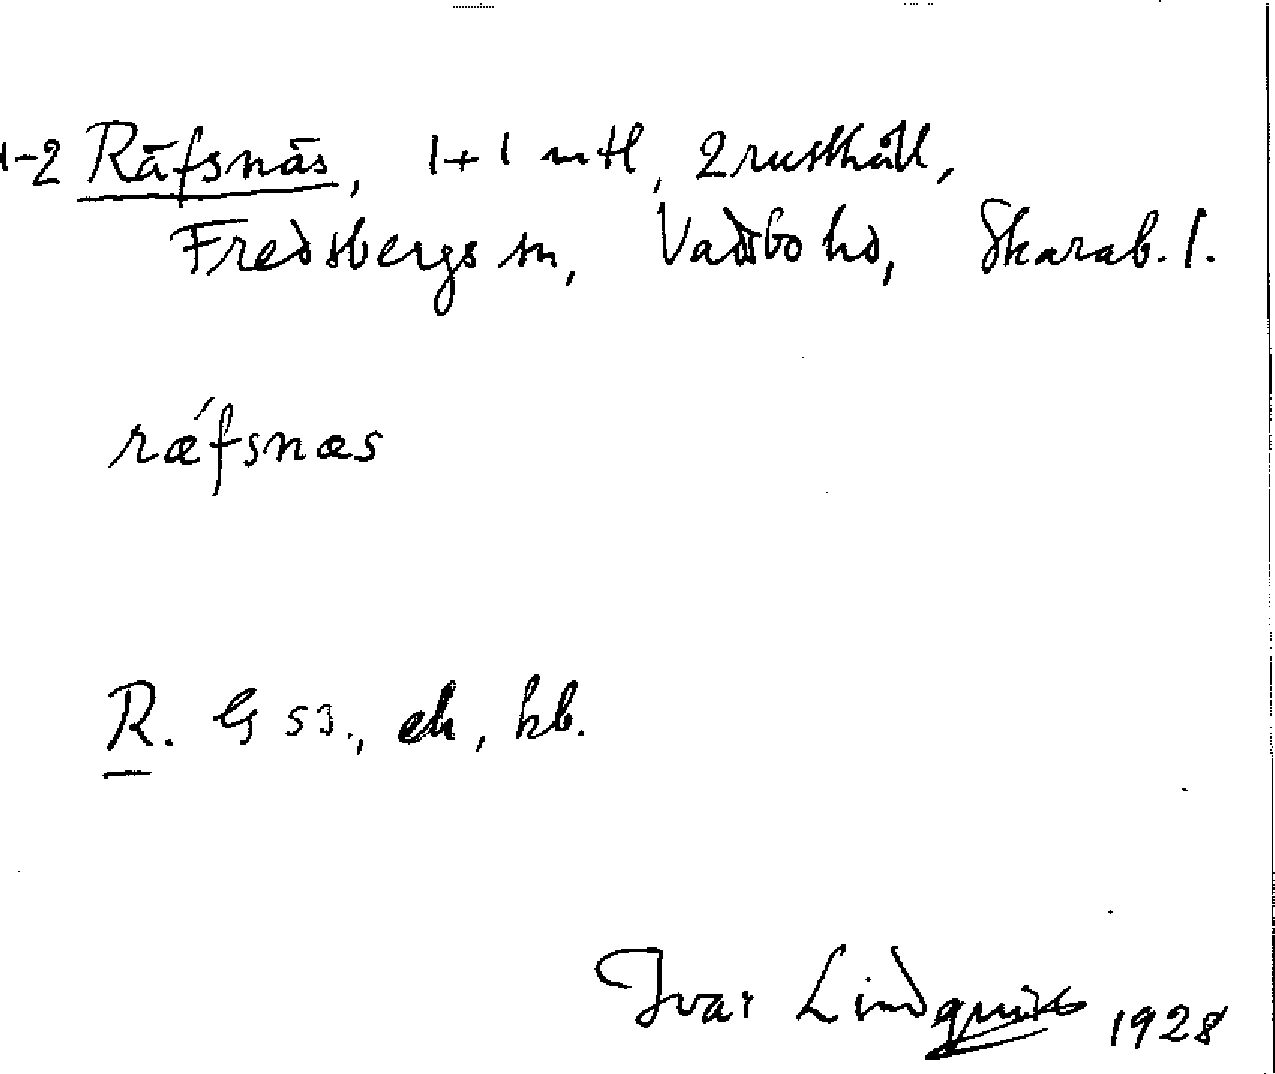 1-2 Räfsnäs, 1+1 mtl, 2 rusthåll,
Fredsbergs sn, Vadsbo hd, Skarab. l.
ræ´fsnæs
R. G 53., ek, kb.
Ivar Lindquist 1928